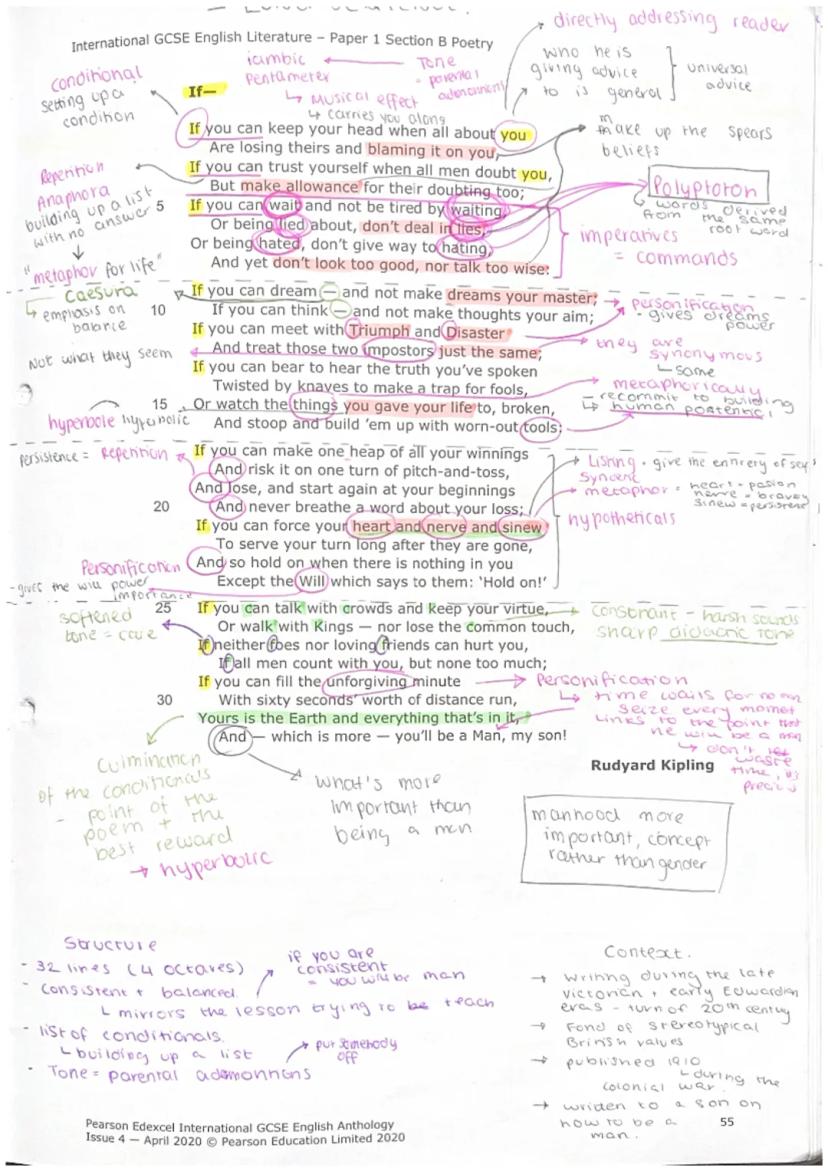 International GCSE English Literature – Paper 1 Section B Poetry
directly addressing reader
who he is
giving advice
to is general
universal
advice
iambic
pentameter
Tone
- parental
↳ Musical effect
↳ carries you along
conditional
setting up a
condition
If—
If you can keep your head when all about you
Are losing theirs and blaming it on you,
If you can trust yourself when all men doubt you,
But make allowance for their doubting too;
5 If you can wait and not be tired by waiting,
Or being lied about, don't deal in lies,
Or being hated, don't give way to hating,
And yet don't look too good, nor talk too wise:
make up the spears
beliefs
Polyptoton
words derived
from the same
root word
imperatives
= commands
Repetition
Anaphora
building up a list
with no answer
"metaphor for life"
caesura
↳ emphasis on
balance
If you can dream — and not make dreams your master;
10 If you can think — and not make thoughts your aim;
If you can meet with Triumph and Disaster
And treat those two impostors just the same;
If you can bear to hear the truth you've spoken
Twisted by knaves to make a trap for fools,
15 Or watch the things you gave your life to, broken,
And stoop and build 'em up with worn-out tools:
→ personification
- gives dreams
power
→ they are
synonymous
↳ same
metaphorically
- recommit to building
↳ human
Not what they seem
hyperbole hyperbolic
If you can make one heap of all your winnings
And risk it on one turn of pitch-and-toss,
And lose, and start again at your beginnings
20 And never breathe a word about your loss;
If you can force your heart and nerve and sinew
To serve your turn long after they are gone,
And so hold on when there is nothing in you
Except the Will which says to them: 'Hold on!'
persistence = Repetition
Listing - give the entirery of self
metaphor = heart = pasion
nerve = bravey
sinew = persistent
hypotheticals
Personification
- gives the will power
importance
25 If you can talk with crowds and keep your virtue,
Or walk with Kings — nor lose the common touch,
If neither foes nor loving friends can hurt you,
If all men count with you, but none too much;
If you can fill the unforgiving minute
30 With sixty seconds' worth of distance run,
Yours is the Earth and everything that's in it,
And — which is more — you'll be a Man, my son!
softened
tone = care
consonant - harsh sounds
sharp didactic tone
→ Personification
↳ time waits for no man
seize every moment
Links to the point that
he will be a man
↳ don't let
waste
time, its
Rudyard Kipling
culminanon
of the conditionals
- point of the
poem + the
best reward
→ hyperbolic
what's more
important than
being a man
manhood more
important, concept
rather than gender
Structure
- 32 lines (4 octaves)
- consistent + balanced.
↳ mirrors the lesson trying to be teach
if you are
consistent
= you will be man
- list of conditionals.
↳ building up a list
put somebody
off
- Tone = parental admonnans
Context.
→ writing during the late
victorian + early Edwardian
eras - turn of 20th century
→ Fond of stereotypical
British values
→ published 1910
↳ during the
colonial war.
→ wriden to a son on
how to be a
man.
Pearson Edexcel International GCSE English Anthology
Issue 4 — April 2020 © Pearson Education Limited 2020
55